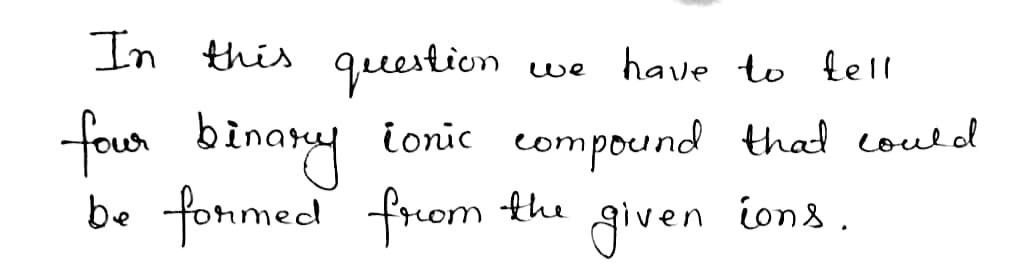 In this question we have to tell
four binary ionic compound that could
be formed from the given ions.